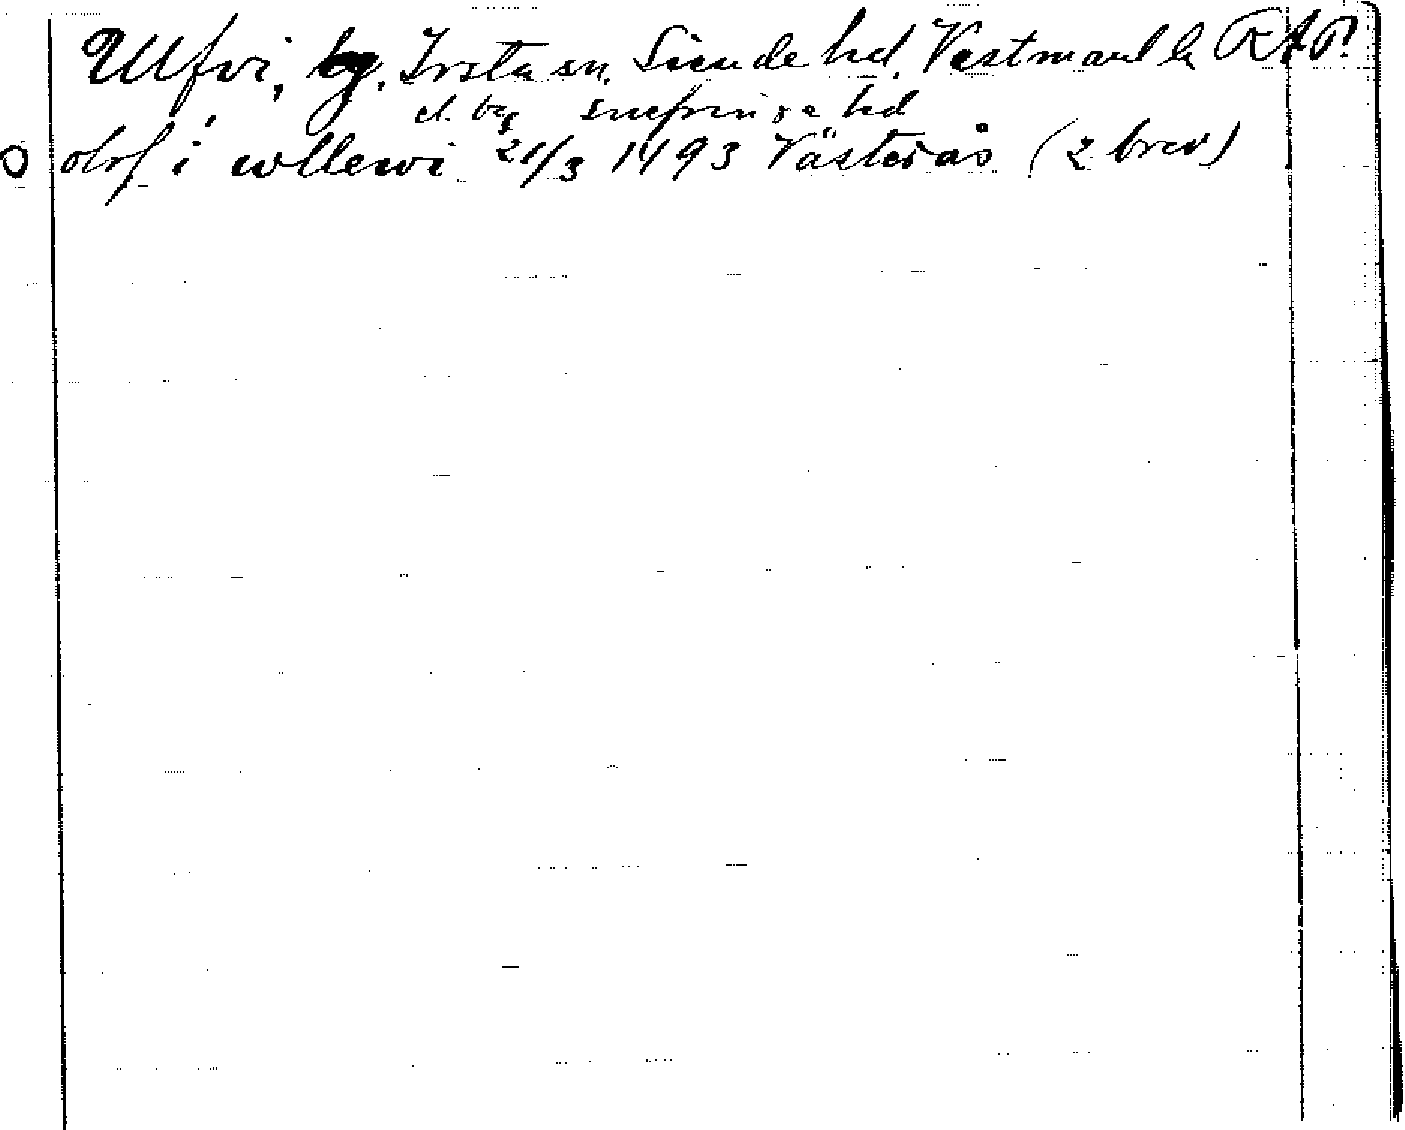 Ulfvi, by, Irsta sn, Siende hd, Vestmanl le RAP!
el. by snefringe hd
O olof i wllewi 21/3 1493 Västerås (2 brev)